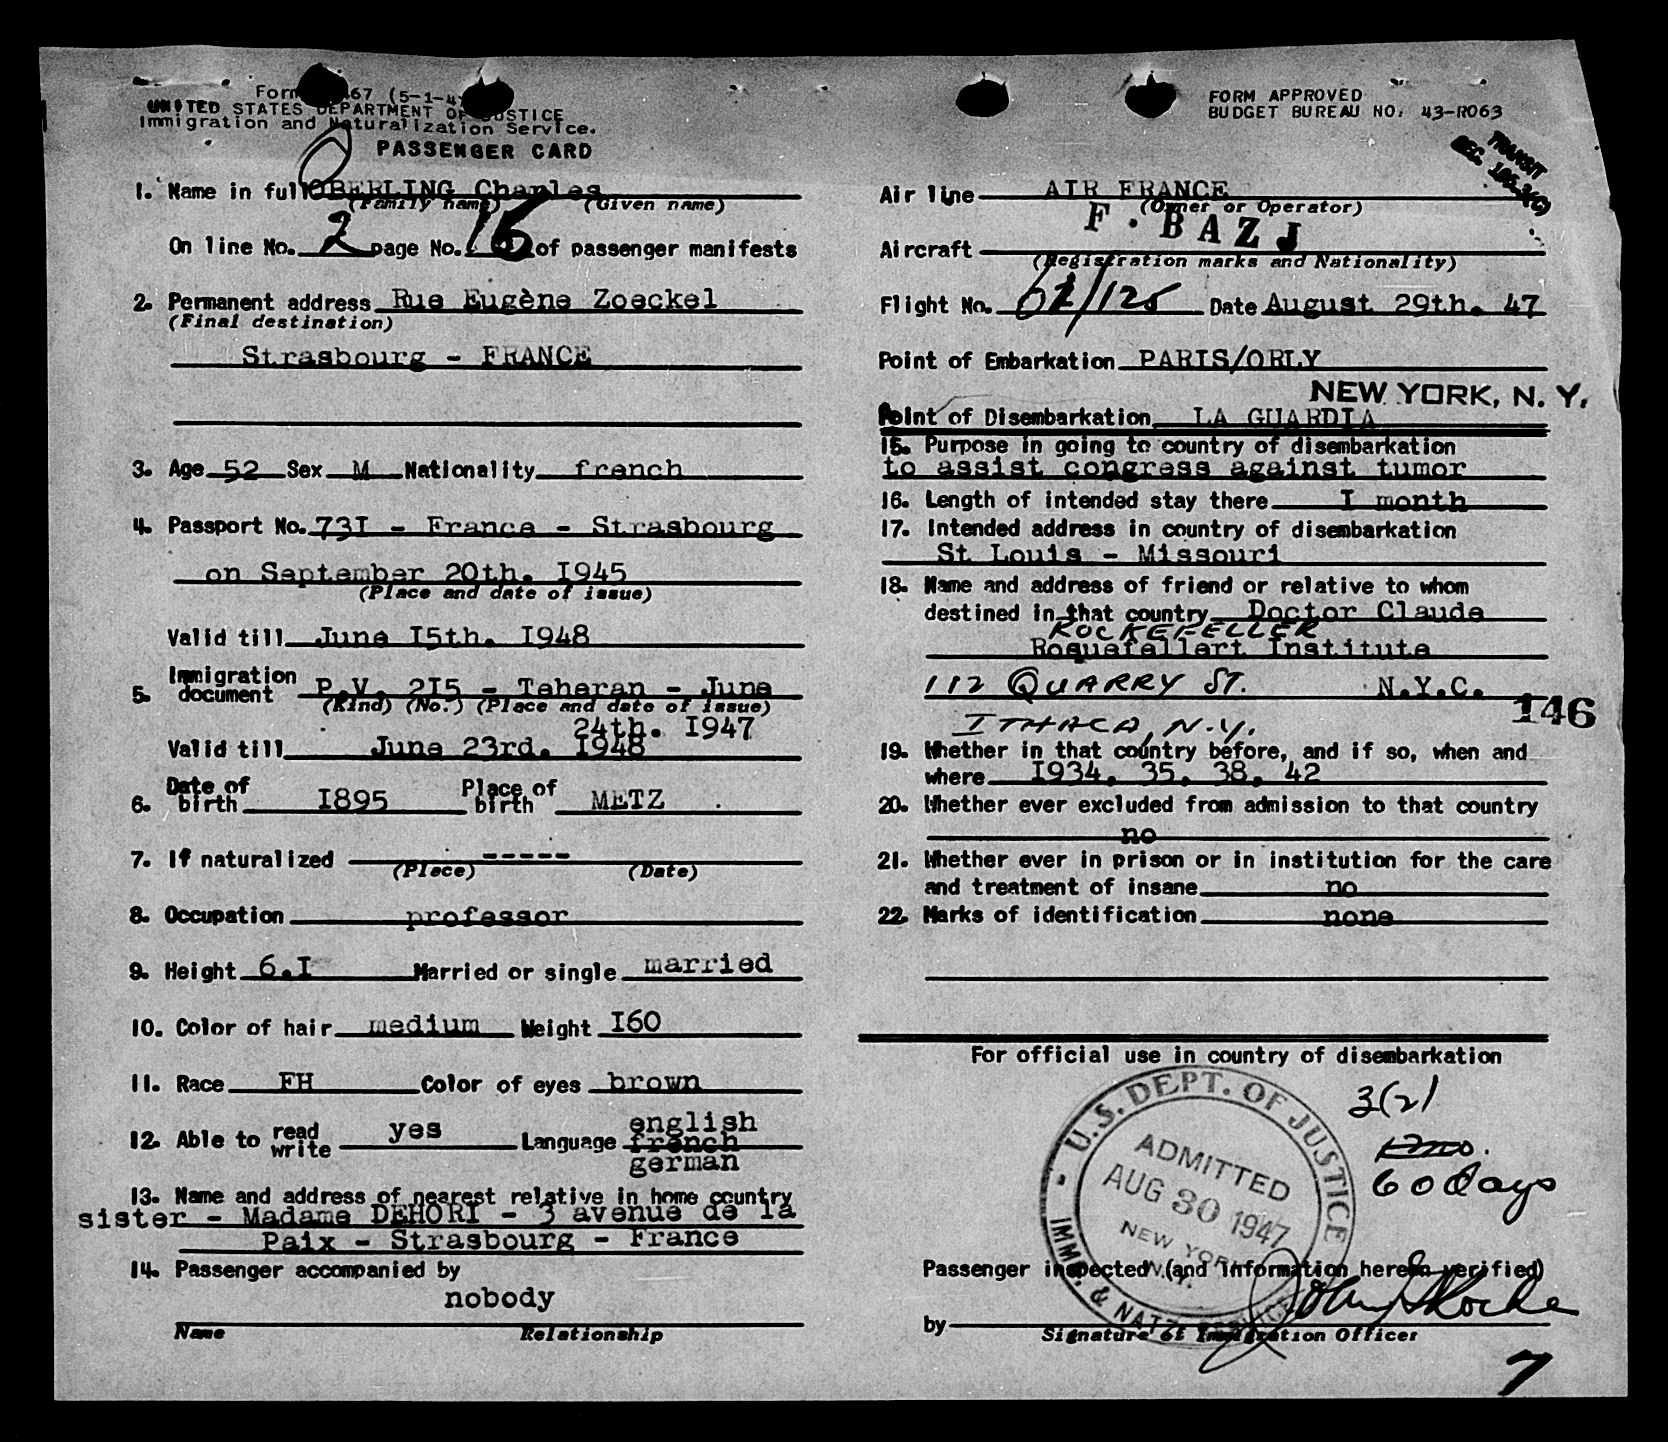 Form 67 (5-1-4
UNITED STATES DEPARTMENT OF JUSTICE
Immigration and Naturalization Service.
PASSENGER CARD
1. Name in full OBERLING Charles
(Family name) (Given name)
On line No. 2 page No. 16 of passenger manifests
2. Permanent address Rue Eugène Zoeckel
(Final destination)
Strasbourg - FRANCE
3. Age 52 Sex M Nationality french
4. Passport No. 73I - France - Strasbourg
on September 20th. I945
(Place and date of issue)
Valid till June I5th. I948
5. Immigration document P.V. 2I5 - Teheran - June
(Kind) (No.) (Place and date of issue)
24th. I947
Valid till June 23rd. I948
6. Date of birth I895 Place of birth METZ
7. If naturalized -----
(Place) (Date)
8. Occupation professor
9. Height 6.I Married or single married
10. Color of hair medium Weight I60
11. Race FH Color of eyes brown
english
12. Able to read write yes Language french
german
13. Name and address of nearest relative in home country
sister - Madame DEHORI - 3 avenue de la
Paix - Strasbourg - France
14. Passenger accompanied by
nobody
Name Relationship
FORM APPROVED
BUDGET BUREAU NO. 43-R063
TRANSIT
SEC.
Air line AIR FRANCE
(Owner or Operator)
F . BAZJ
Aircraft
(Registration marks and Nationality)
Flight No. Date August 29th. 47
Point of Embarkation PARIS/ORLY
NEW YORK, N. Y.
Point of Disembarkation LA GUARDIA
15. Purpose in going to country of disembarkation
to assist congress against tumor
16. Length of intended stay there I month
17. Intended address in country of disembarkation
St Louis - Missouri
18. Name and address of friend or relative to whom
destined in that country Doctor Claude
ROCKEFELLER
Roquefellert Institute
112 QUARRY ST. N.Y.C.
146
ITHACA, N.Y.
19. Whether in that country before, and if so, when and
where I934, 35, 38, 42
20. Whether ever excluded from admission to that country
no
21. Whether ever in prison or in institution for the care
and treatment of insane no
22. Marks of identification none
For official use in country of disembarkation
3(2)
60 days
U.S. DEPT. OF JUSTICE
ADMITTED
AUG 30 1947
NEW YORK
N.Y.
IMM. & NATZ. SERVICE
Passenger inspected (and information herein verified)
by
Signature of Immigration Officer
7